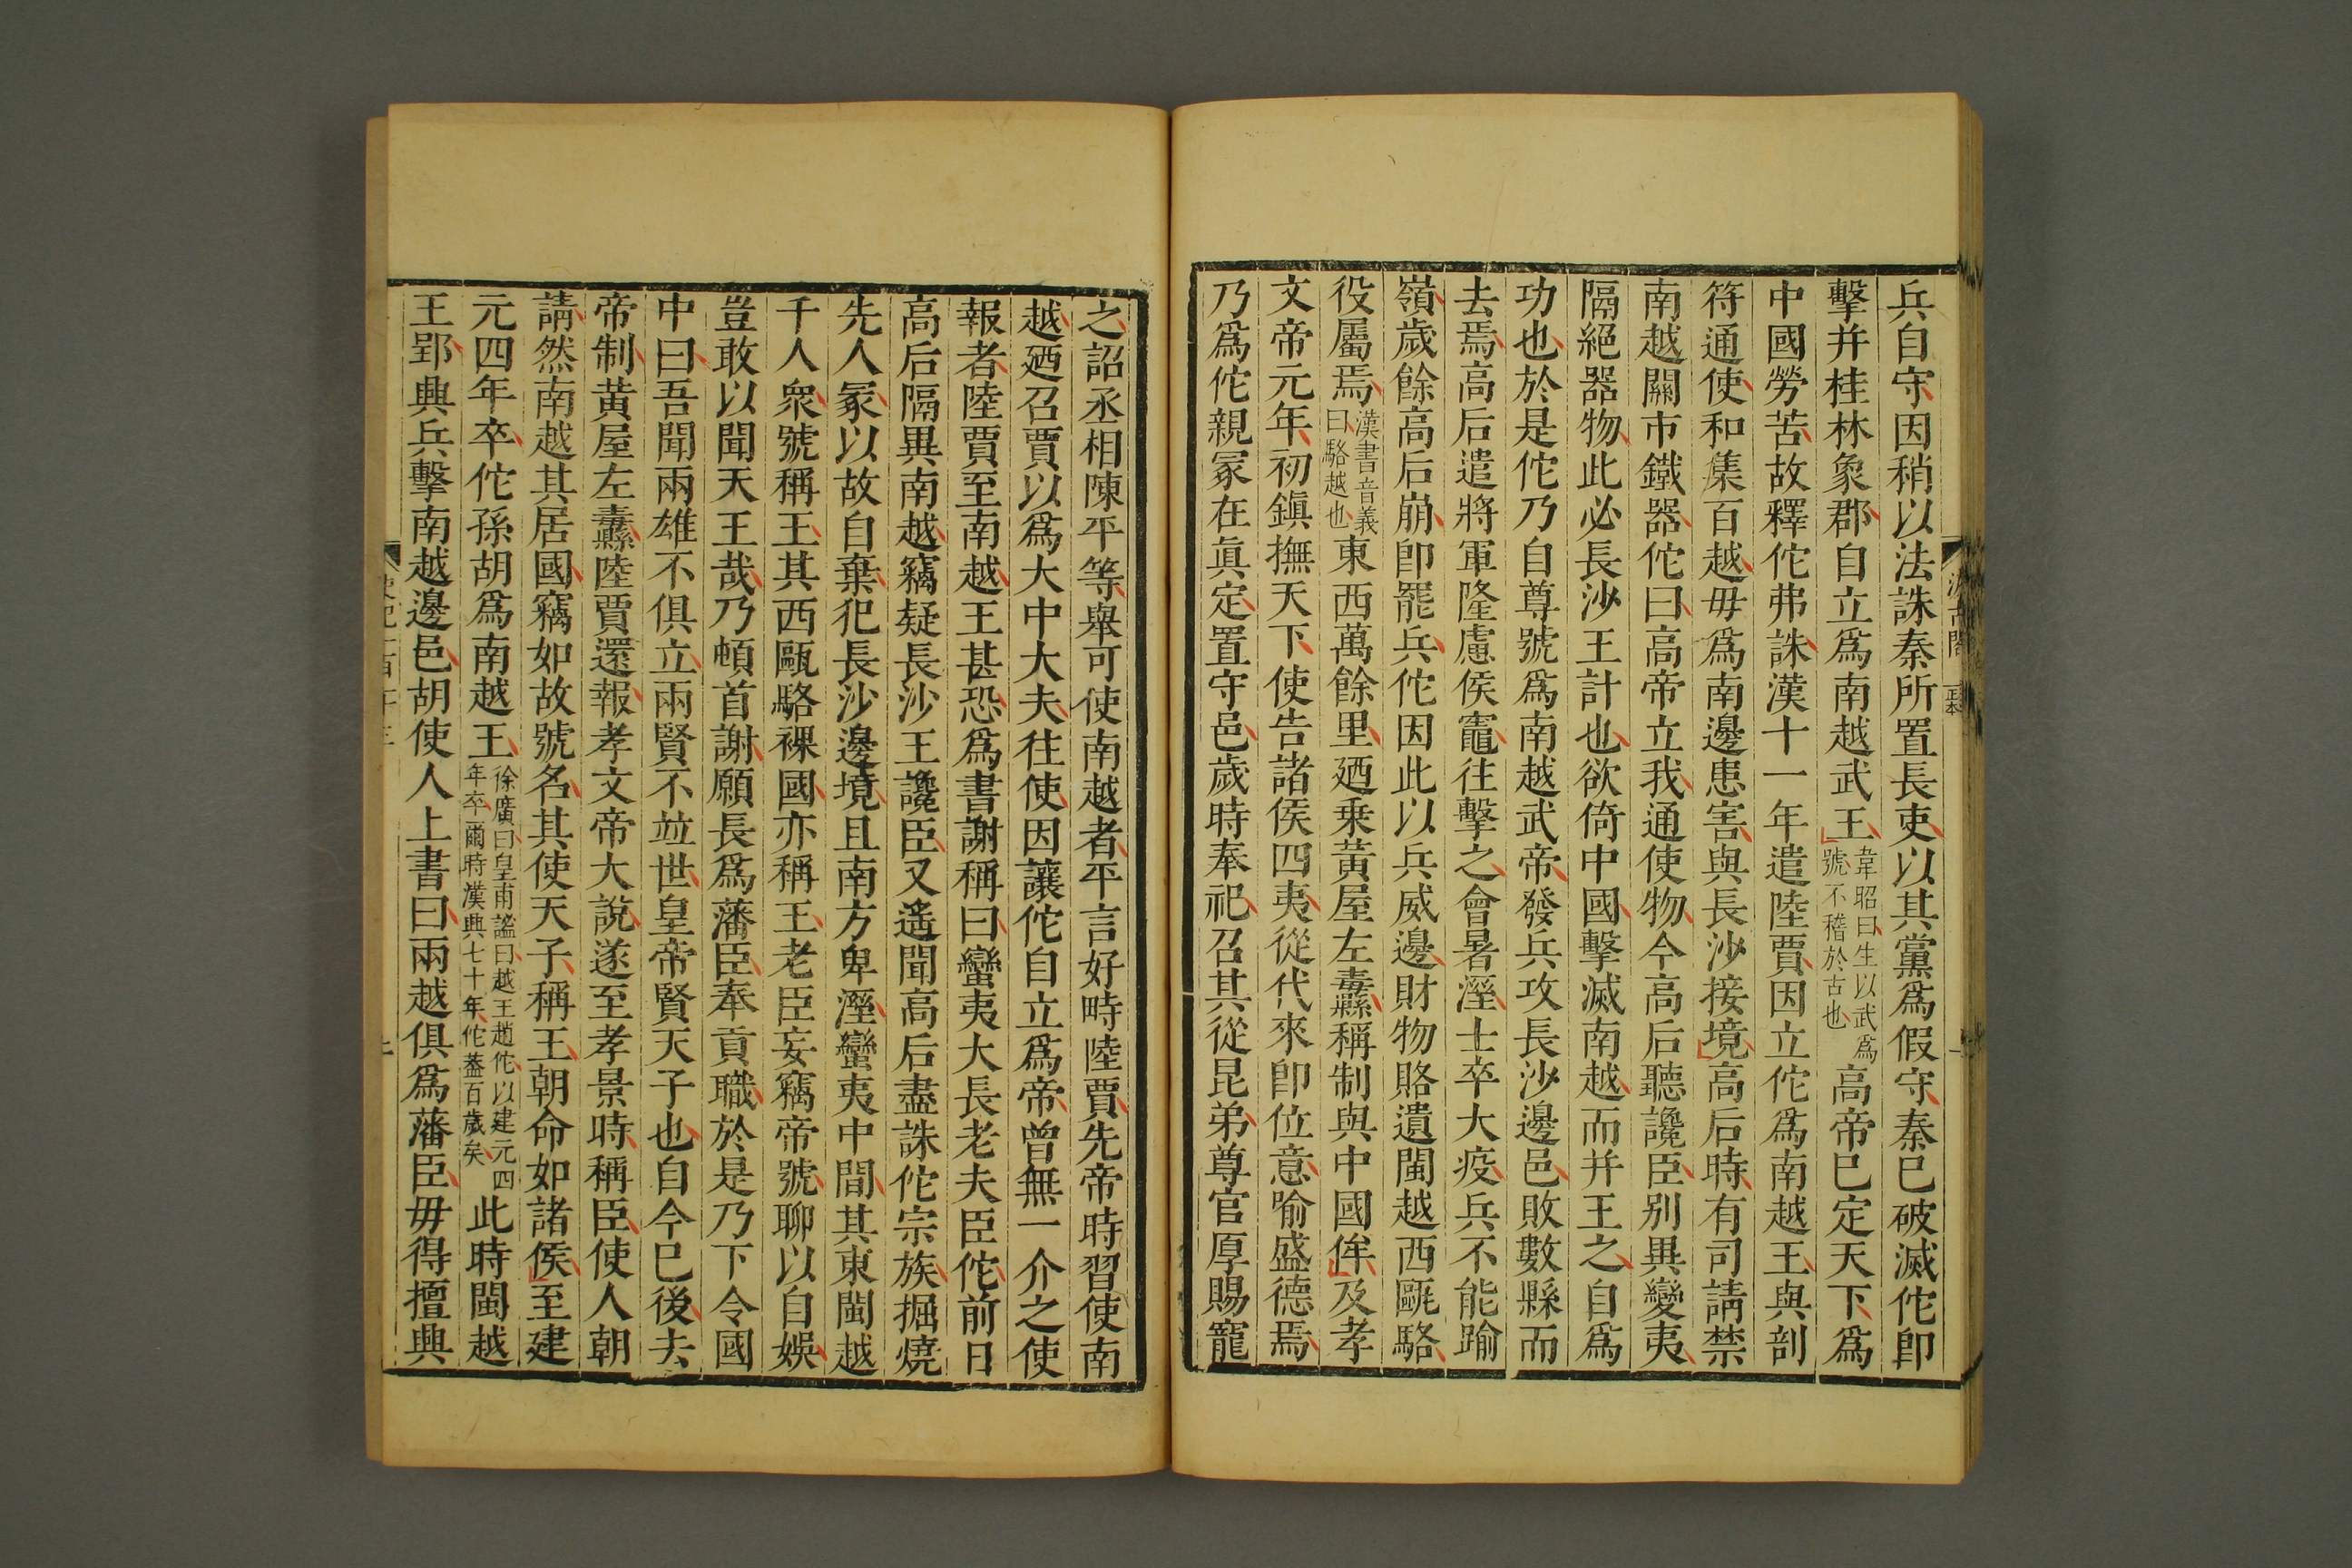 兵自守因稍以法誅秦所置長吏以其黨爲假守秦巳破滅佗卽
擊并桂林象郡自立爲南越武王韋昭曰生以武爲號不稽於古也高帝巳定天下爲
中國勞苦故釋佗弗誅漢十一年遣陸賈因立佗爲南越王與剖
符通使和集百越毋爲南邊患害與長沙接境高后時有司請禁
南越關市鐵器佗曰高帝立我通使物今高后聽讒臣别異蠻夷
隔絕器物此必長沙王計也欲倚中國擊滅南越而并王之自爲
功也於是佗乃自尊號爲南越武帝發兵攻長沙邊邑敗數縣而
去焉高后遣將軍隆慮侯竈往擊之會暑溼士卒大疫兵不能踰
嶺歲餘高后崩卽罷兵佗因此以兵威邊財物賂遺閩越西甌駱
役屬焉漢書音義曰駱越也東西萬餘里廼乗黃屋左纛稱制與中國侔及孝
文帝元年初鎭撫天下使告諸侯四夷從代來卽位意喻盛德焉
乃爲佗親冢在眞定置守邑歲時奉祀召其從昆弟尊官厚賜寵
之詔丞相陳平等舉可使南越者平言好畤陸賈先帝時習使南
越廼召賈以爲大中大夫往使因讓佗自立爲帝曾無一介之使
報者陸賈至南越王甚恐爲書謝稱曰蠻夷大長老夫臣佗前日
高后隔異南越竊疑長沙王讒臣又遙聞高后盡誅佗宗族掘燒
先人冢以故自棄犯長沙邊境且南方卑溼蠻夷中間其東閩越
千人衆號稱王其西甌駱裸國亦稱王老臣妄竊帝號聊以自娛
豈敢以聞天王哉乃頓首謝願長爲藩臣奉貢職於是乃下令國
中曰吾聞兩雄不俱立兩賢不竝世皇帝賢天子也自今巳後去
帝制黃屋左纛陸賈還報孝文帝大說遂至孝景時稱臣使人朝
請然南越其居國竊如故號名其使天子稱王朝命如諸侯至建
元四年卒佗孫胡爲南越王徐廣曰皇甫謐曰越王趙佗以建元四年卒爾時漢興七十年佗葢百歲矣此時閩越
王郢興兵擊南越邊邑胡使人上書曰兩越俱爲藩臣毋得擅興